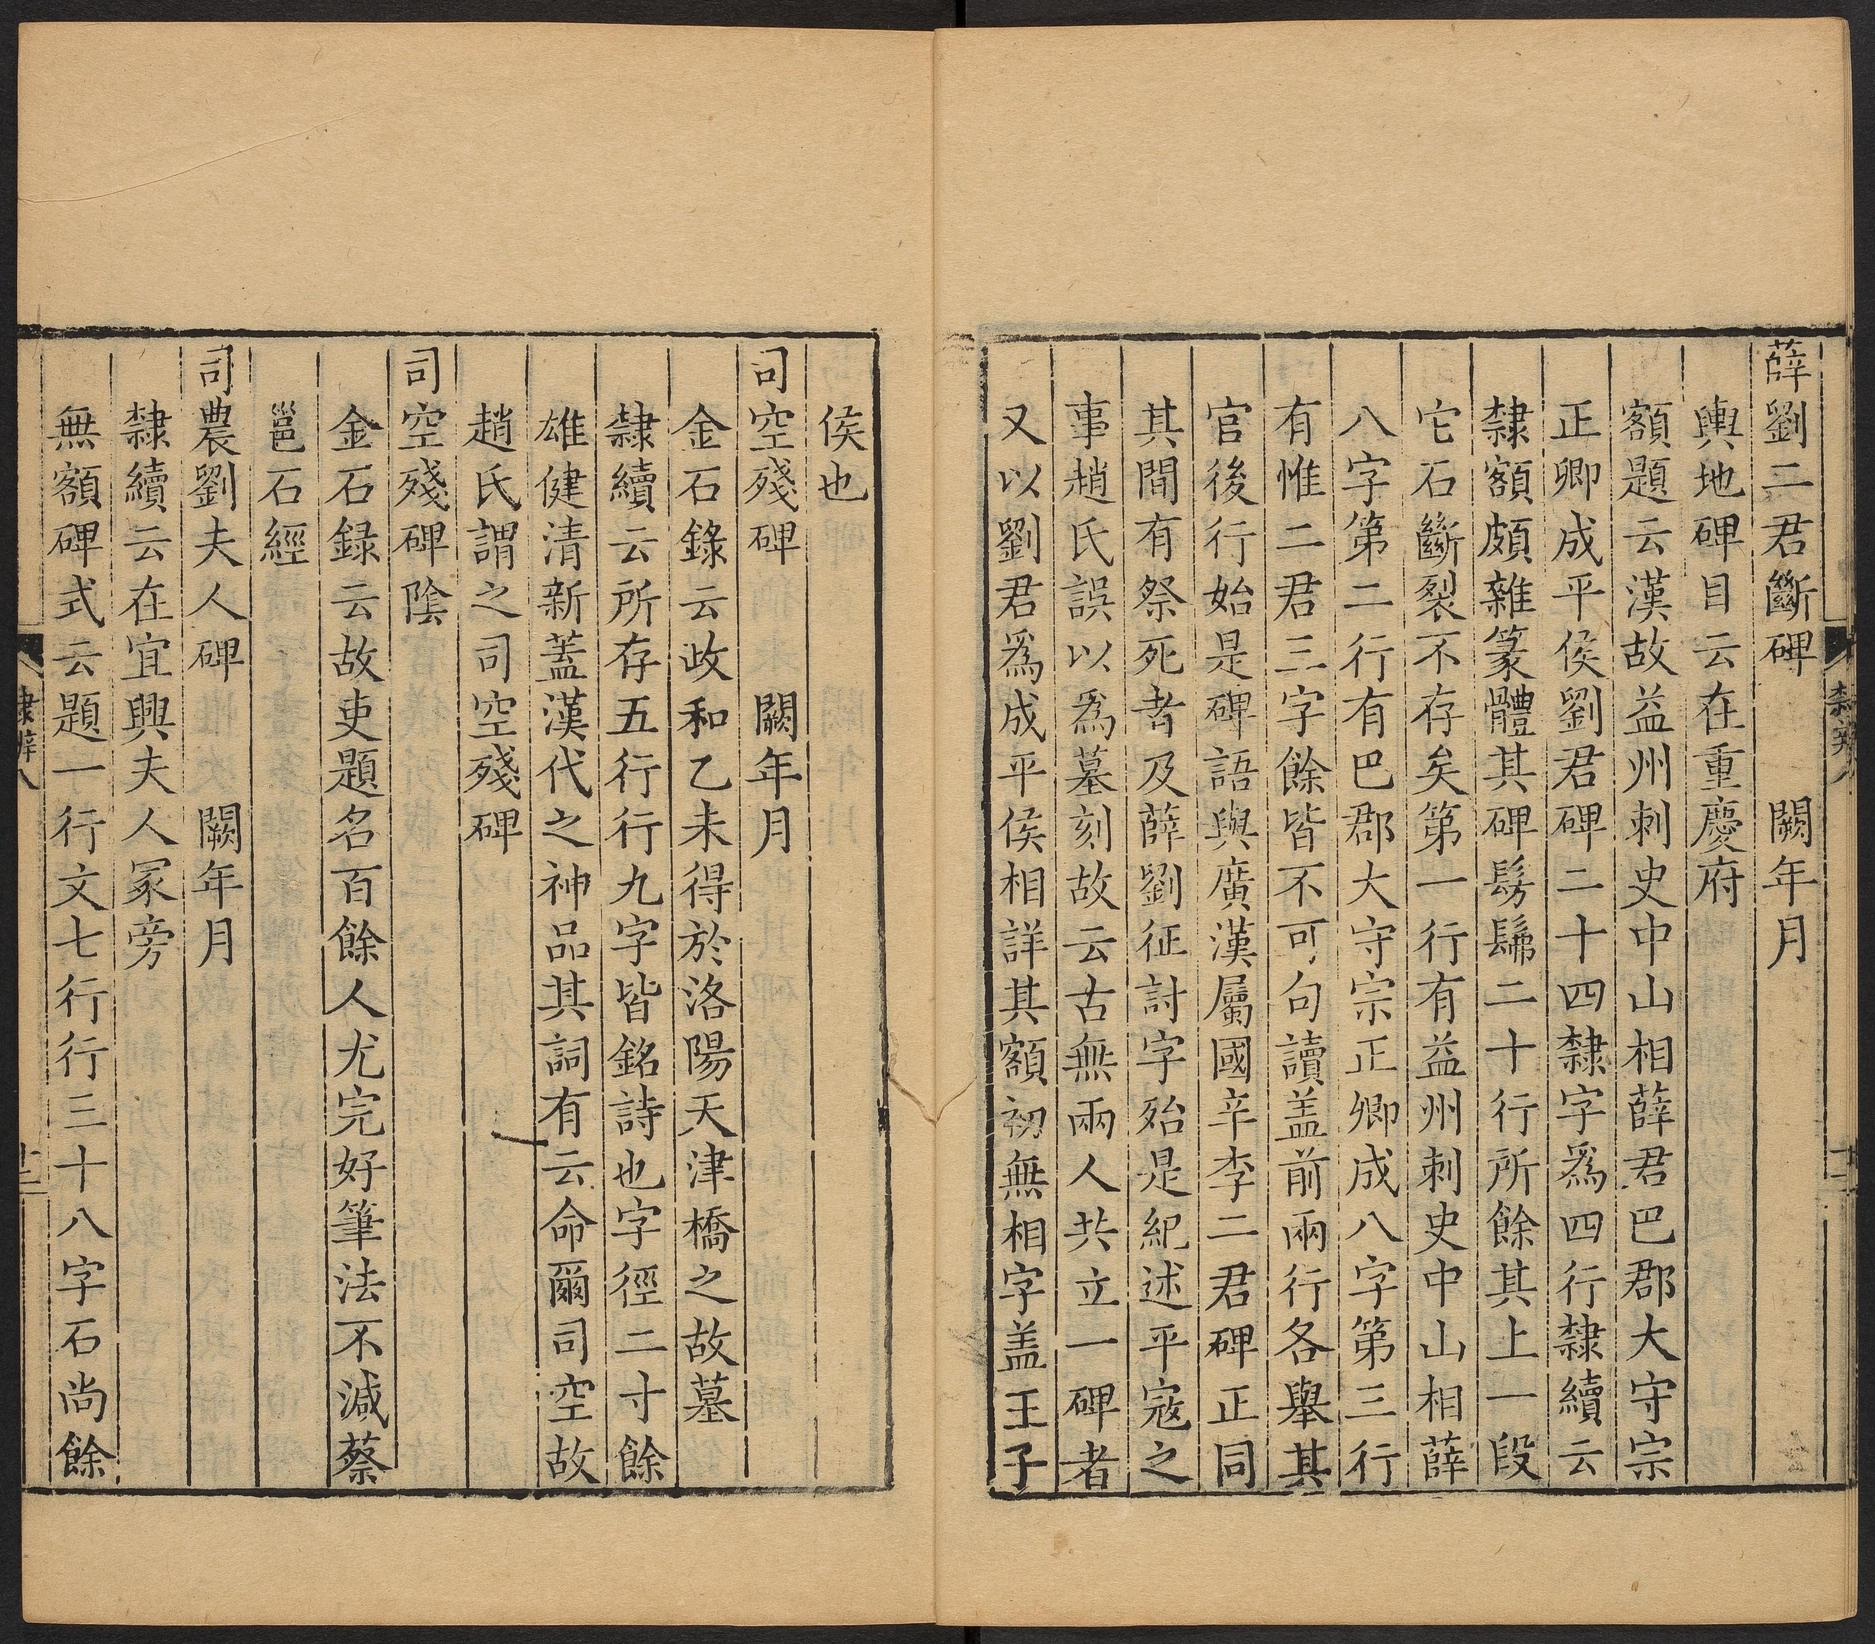 薛劉二君斷碑 闕年月
輿地碑目云在重慶府
額題云漢故益州刺史中山相薛君巴郡大守宗
正卿成平侯劉君碑二十四隸字爲四行隸續云
隸額頗雜篆體其碑髣髴二十行所餘其上一段
它石斷裂不存矣第一行有益州刺史中山相薛
八字第二行有巴郡大守宗正卿成八字第三行
有惟二君三字餘皆不可句讀盖前兩行各舉其
官後行始是碑語與廣漢屬國辛李二君碑正同
其間有祭死者及薛劉征討字殆是紀述平寇之
事趙氏誤以爲墓刻故云古無兩人共立一碑者
又以劉君爲成平侯相詳其額初無相字盖王子
侯也
司空殘碑 闕年月
金石錄云政和乙未得於洛陽天津橋之故墓
隸續云所存五行行九字皆銘詩也字徑二寸餘
雄健清新蓋漢代之神品其詞有云命爾司空故
趙氏謂之司空殘碑
司空殘碑陰
金石録云故吏題名百餘人尤完好筆法不減蔡
邕石經
司農劉夫人碑 闕年月
隸續云在宜興夫人冢旁
無額碑式云題一行文七行行三十八字石尚餘
隸辨八